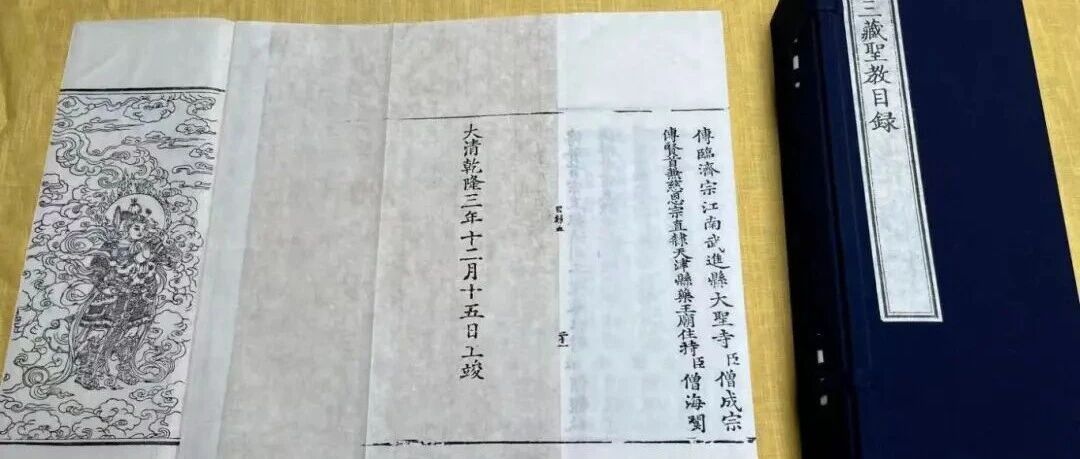 三藏聖教目録
傳臨濟宗江南武進縣大聖寺臣僧成宗
傳賢首兼慈恩宗直隸天津縣藥王廟住持臣僧海
大清乾隆三年十二月十五日工竣